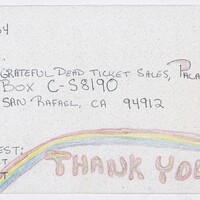 4
GRATEFUL DEAD TICKET SALES,
BOX C-S8190
SAN RAFAEL, CA 94912
EST:
THANK YOU